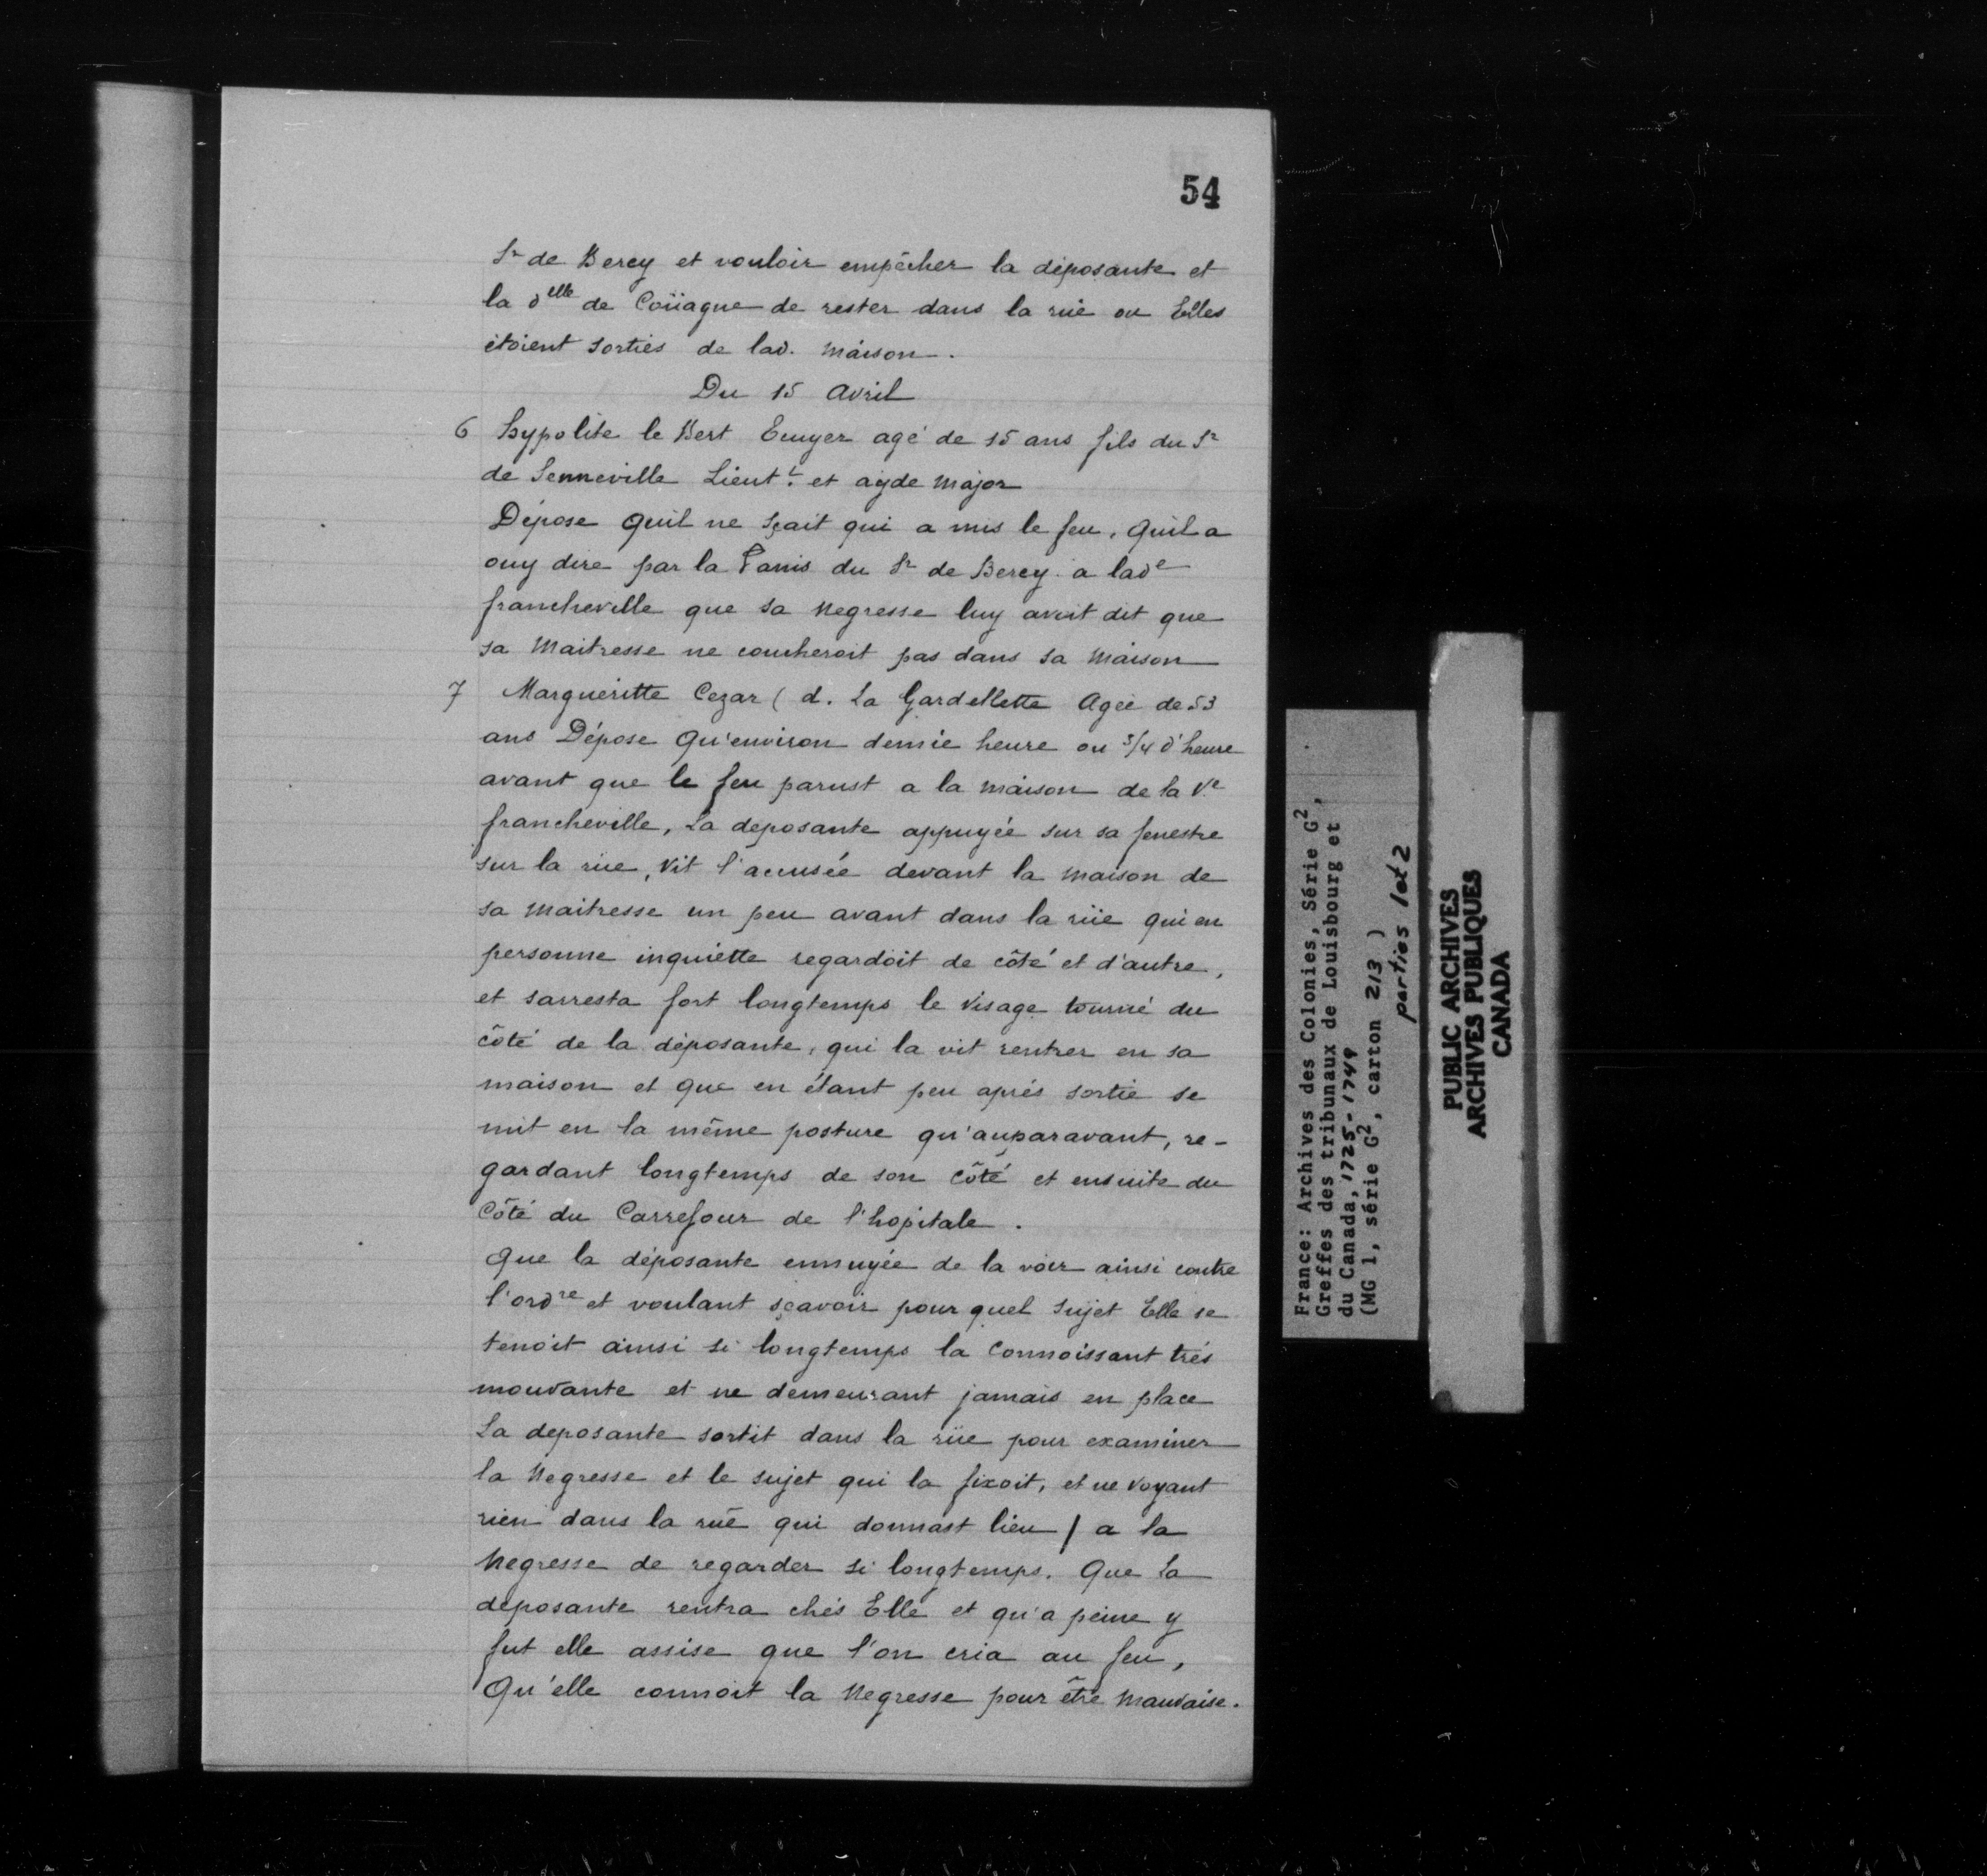 54
Sr de Berey et vouloir empêcher la déposante et
la delle de Coüagne de rester dans la rüe ou Elles
étoient sorties de lad. maison.
Du 15 Avril
6 hypolite le Bert Ecuyer agé de 15 ans fils du Sr
de Senneville Lieutt. et ayde major
Dépose quil ne sçait qui a mis le feu, quil a
ouy dire par la Panis du Sr de Berey a lade
francheville que sa negresse luy avoit dit que
sa Maitresse ne coucheroit pas dans sa maison
7 Margueritte Cezar ( d. La Gardellette Agée de 53
ans Dépose Qu'environ demie heure ou 3/4 d'heure
avant que le feu parust a la maison de la Ve
francheville, La deposante appuyée sur sa fenestre
sur la rüe, vit l'accusée devant la maison de
sa maitresse un peu avant dans la rüe qui en
personne inquiétte regardoit de côté et d'autre,
et sarresta fort longtemps le visage tourné du
côté de la déposante, qui la vit rentrer en sa
maison et que en étant peu aprés sortie se
mit en la même posture qu'auparavant, re-
gardant longtemps de son côté et ensuite du
Côté du Carrefour de l'hopitale.
Que la déposante ennuyée de la voir ainsi contre
l'ordre et voulant sçavoir pour quel sujet Elle se
tenoit ainsi si longtemps la Connoissant trés
mouvante et ne demeurant jamais en place
La deposante sortit dans la rüe pour examiner
la Negresse et le sujet qui la fixoit, et ne voyant
rien dans la rüe qui donnast lieu / a la
Negresse de regarder si longtemps. Que La
déposante rentra chés Elle et qu'a peine y
fut elle assise que l'on cria au feu,
Qu'elle connoit la Negresse pour être mauvaise.
France: Archives des Colonies, Série G2,
Greffes des tribunaux de Louisbourg et
du Canada, 1725-1749
(MG 1, série G2, carton 213 )
parties 1 et 2
PUBLIC ARCHIVES
ARCHIVES PUBLIQUES
CANADA